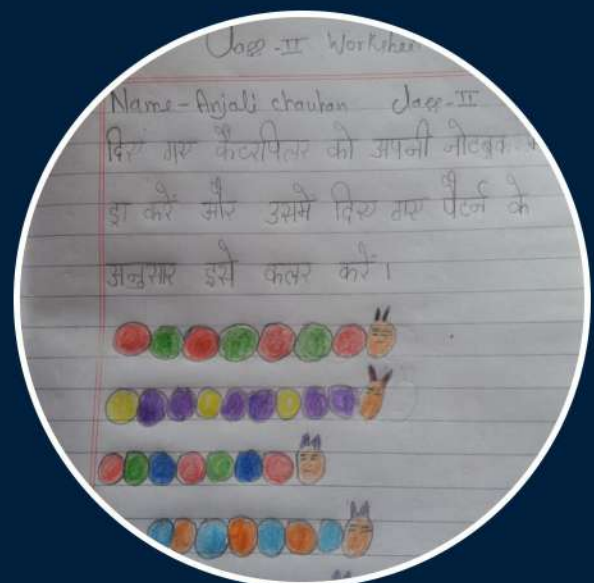 Class-II Worksheet
Name-Anjali chauhan Class-II
दिए गए कैटरपिलर को अपनी नोटबुक
ड्रा करें और उसमें दिए गए पैटर्न के
अनुसार इसे कलर करें।